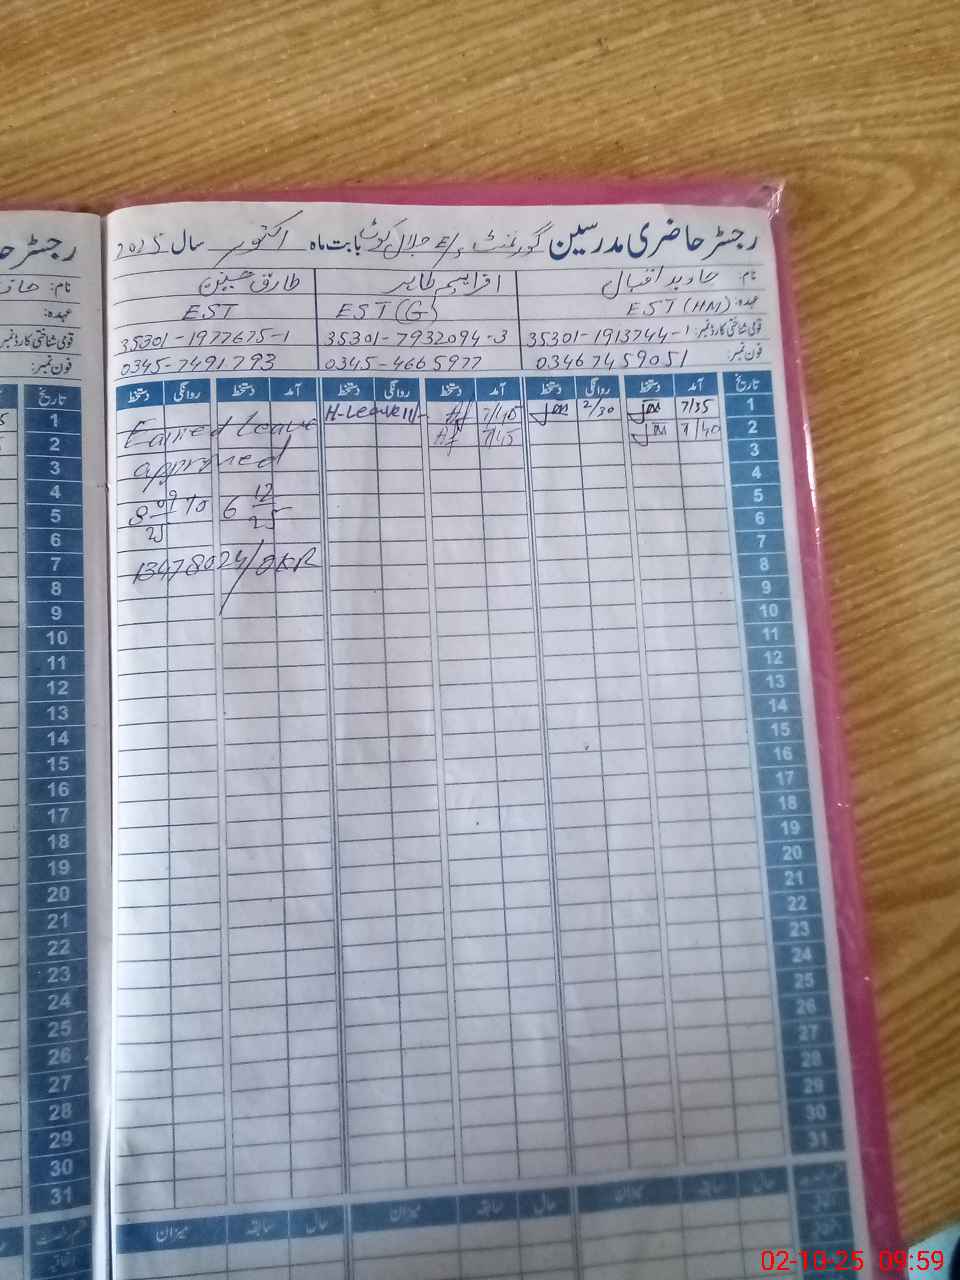 رجسٹر حاضری مدرسین گورنمنٹ E/S جلال کوٹ بابت ماہ اکتوبر سال 2025
نام: جاوید اقبال افراہیم طاہر طارق حسین
عہدہ: EST (HM) EST (G) EST
قومی شناختی کارڈ نمبر: 35301-1913744-1 35301-7932094-3 35301-1977675-1
فون نمبر: 03467459051 0345-4665977 0345-7491793
تاریخ آمد دستخط روانگی دستخط آمد دستخط روانگی دستخط آمد دستخط روانگی دستخط
1 7/35 2/30 7/45 H-Leave Earned Leave
2 7/40 7/45
3 approved
4
5 8 09/25 To 6 12/25
6
7
8
9
10
11
12
13
14
15
16
17
18
19
20
21
22
23
24
25
26
27
28
29
30
31
حال سابقہ میزان حال سابقہ میزان حال سابقہ میزان
رجسٹر حا
نام:
عہدہ:
قومی شناختی کارڈ نمبر
فون نمبر:
تاریخ
1
2
3
4
5
6
7
8
9
10
11
12
13
14
15
16
17
18
19
20
21
22
23
24
25
26
27
28
29
30
31
02-10-25 09:59